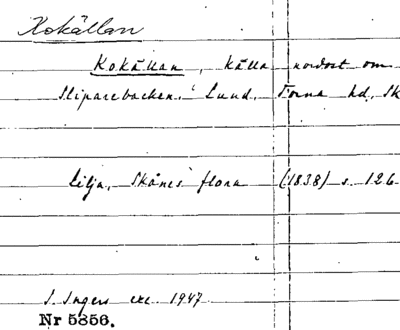 Kokällan
Kokällan, källa nordost om
Sliparebacken i Lund. Torna hd, Sk
Lilja, Skånes flora (1838) s. 126
I. Ingers exc. 1947
Nr 5856.